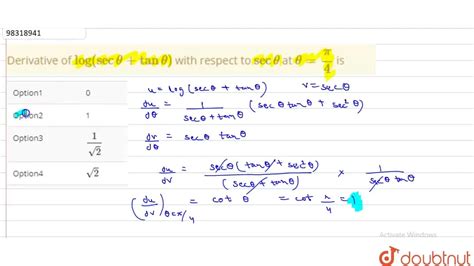 98318941
Derivative of log(sec θ + tan θ) with respect to sec θ at θ = π/4 is
Option1 0
1
Option3 1/√2
Option4 √2
u = log(secθ + tanθ) v = secθ
du/dθ = 1/(secθ + tanθ) (secθ tanθ + sec²θ)
dv/dθ = secθ tanθ
du/dv = secθ(tanθ + secθ)/(secθ + tanθ) × 1/(secθ tanθ)
(du/dv)θ=π/4 = cot θ = cot π/4 = 1
Activate Windows
doubtnut